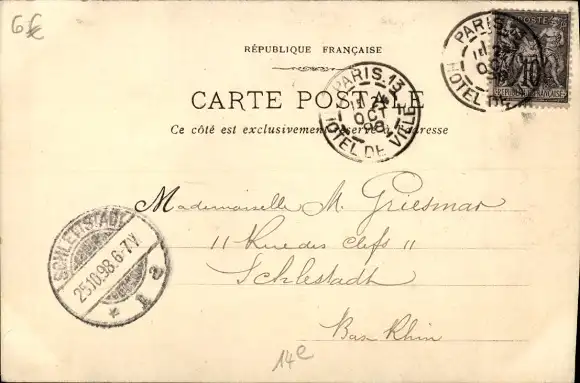 6€
RÉPUBLIQUE FRANÇAISE
CARTE POSTALE
Ce côté est exclusivement réservé à l'adresse
PARIS 13
24
OCT
98
HOTEL DE VILLE
PARIS
OCT
HOTEL DE
POSTES
10
RÉPUBLIQUE FRANÇAISE
Mademoiselle M. Griesmar
11 Rue des clefs 11
Schlestadt
Bas Rhin
SCHLETTSTADT
25.10.98.6-7V
* 1 a
14e